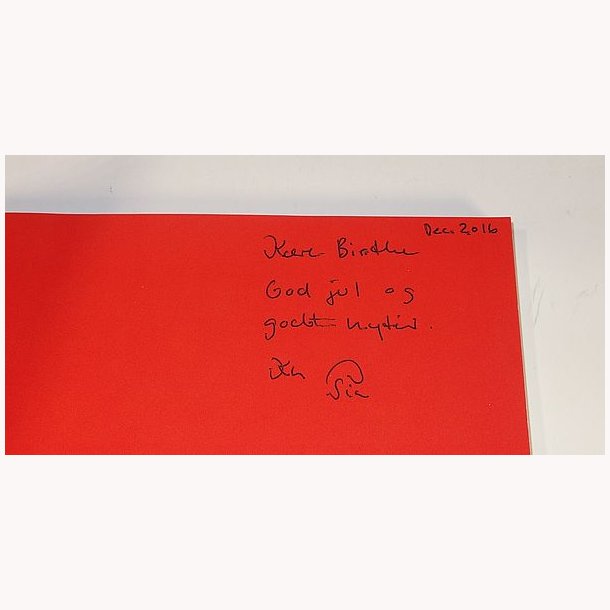 Dec. 2016
Kære Birthe
God jul og
godt nytår.
Kh Pia